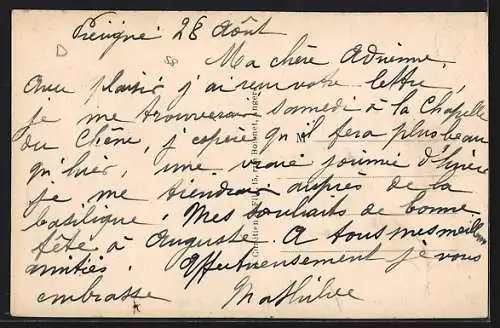 Précigné 28 Août
Ma chère Adrienne.
Avec plaisir j'ai reçu votre lettre,
je me trouverai samedi à la Chapelle
du Chêne, j'espère qu'il fera plus beau
qu'hier, une vraie journée d'hiver
je me tiendrai auprès de la
basilique. Mes souhaits de bonne
fête à Auguste. A tous mes meilleures
amitiés. Affectueusement je vous
embrasse Mathilde